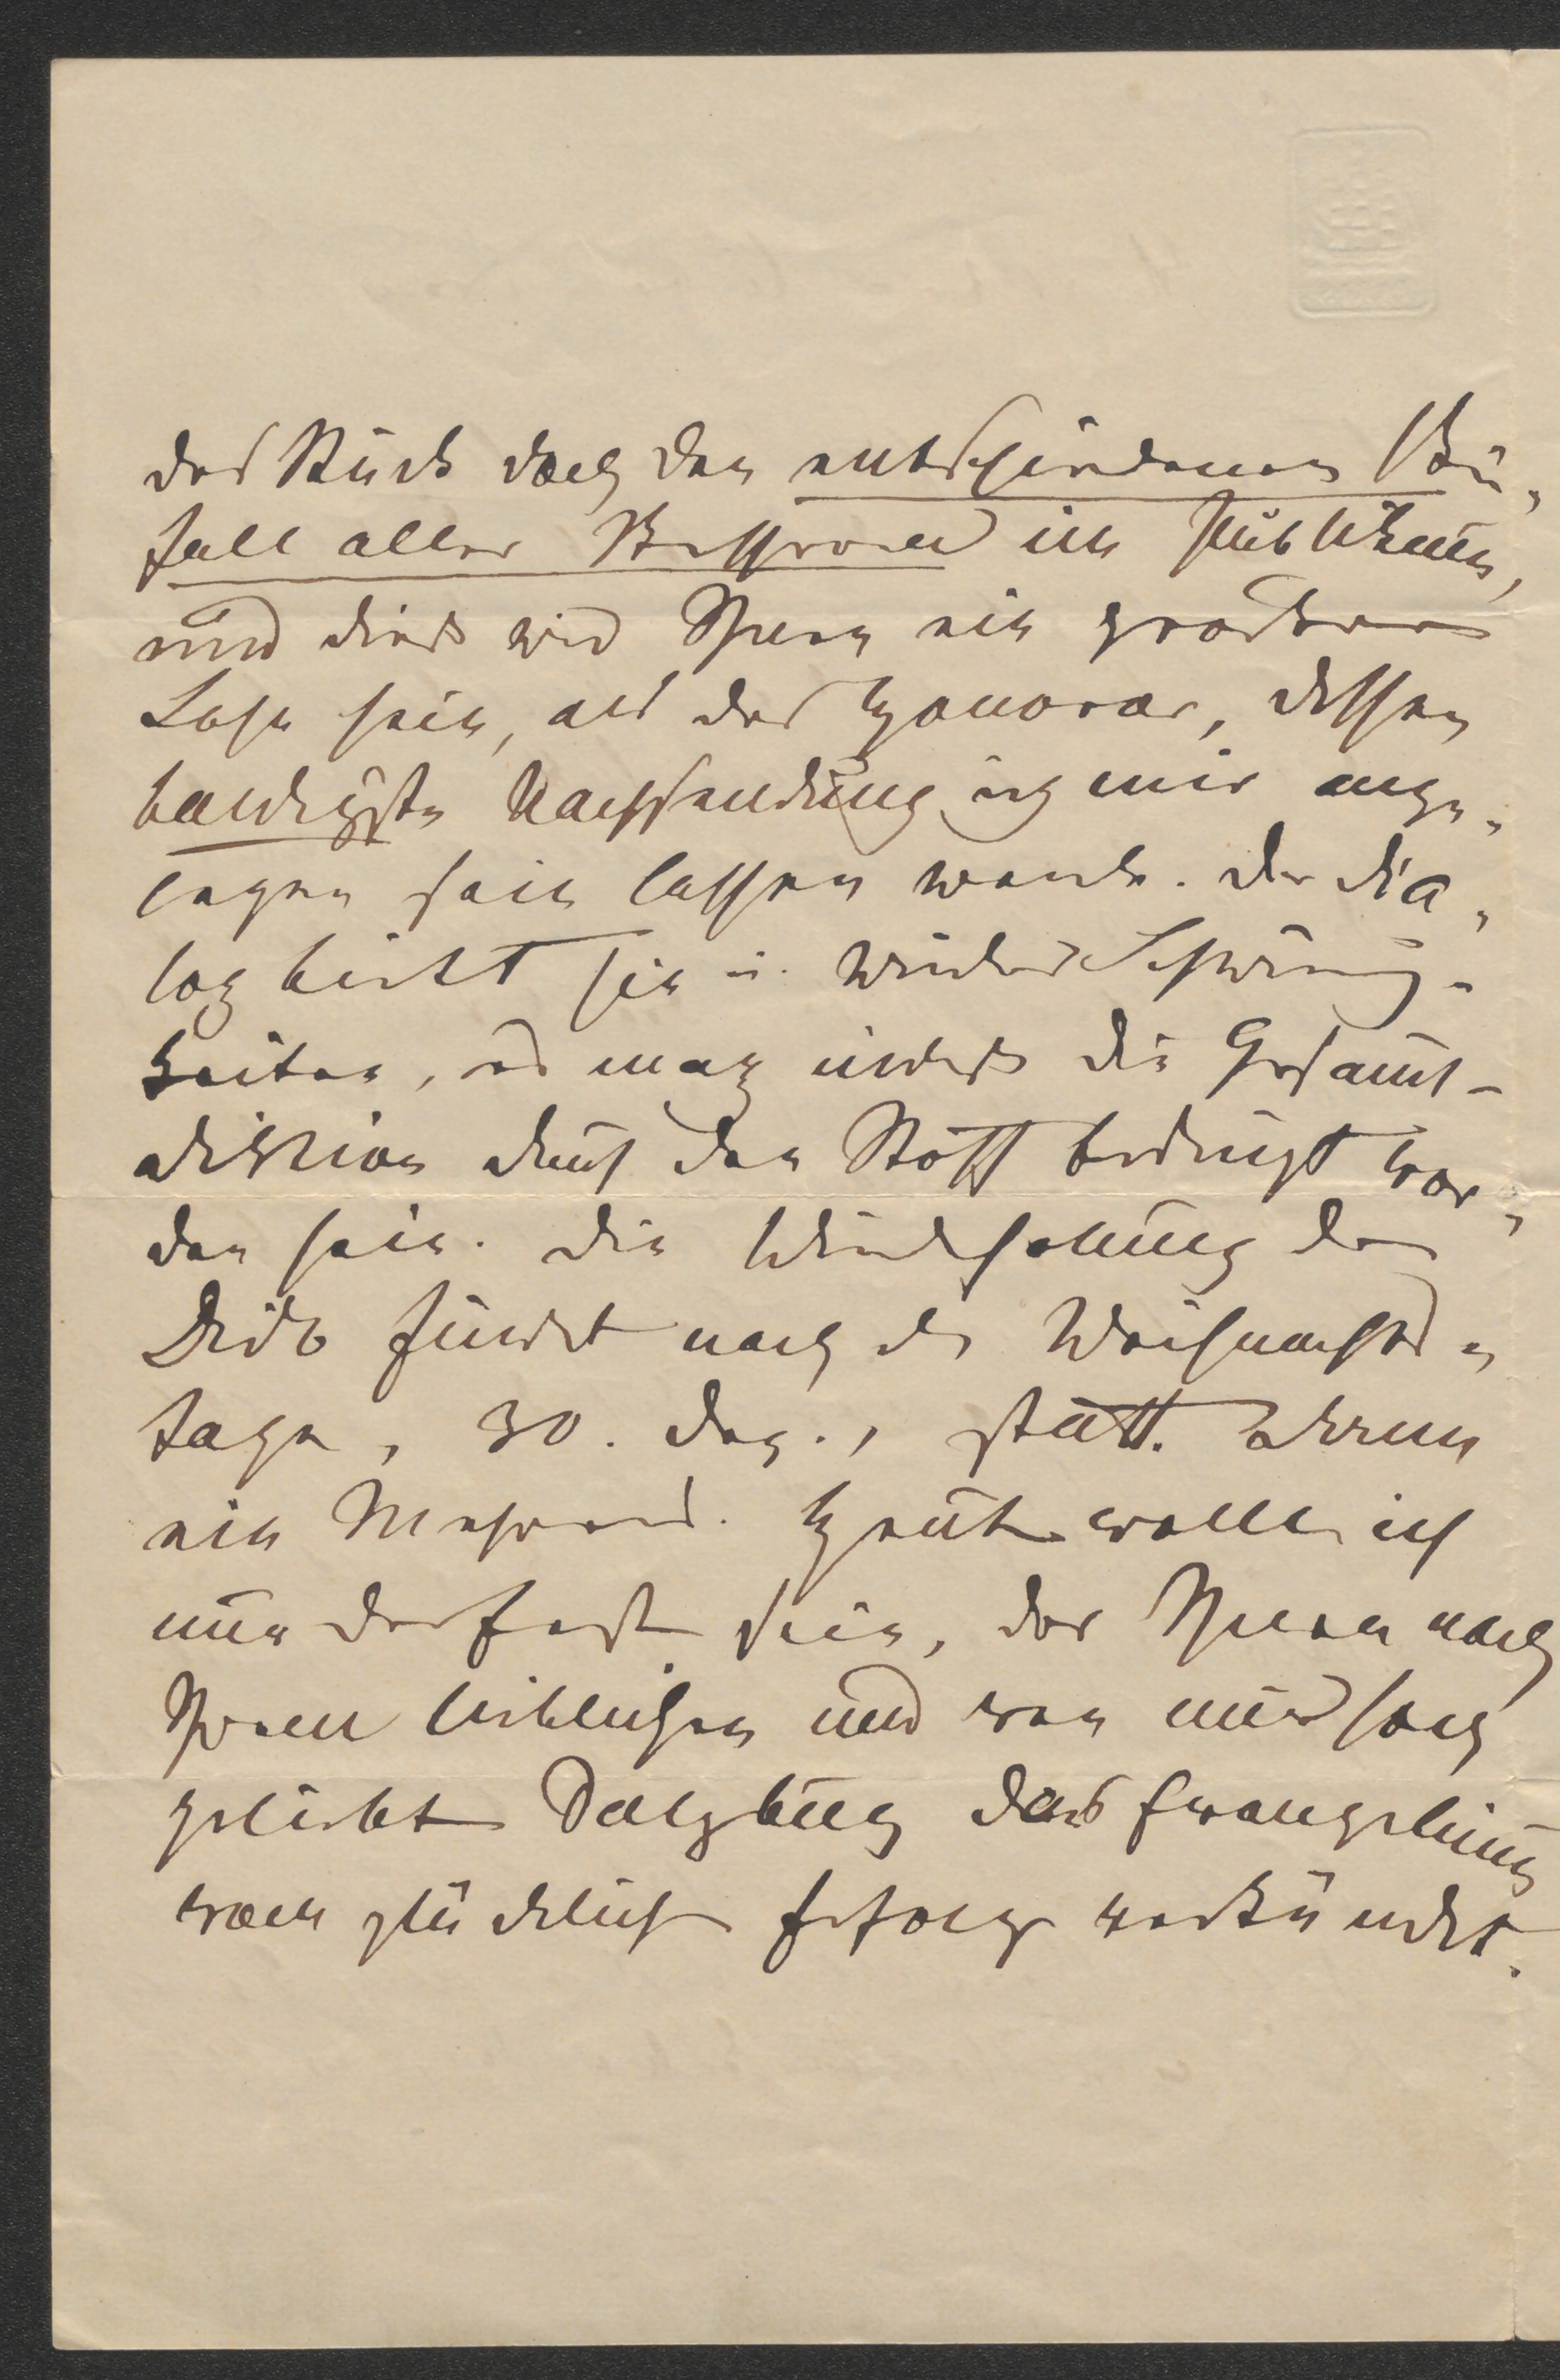 das Stück doch den entschiedenen Bei-
fall aller Besseren im Publikum,
und dieß wird Ihnen ein größerer
Lohn sein, als das Honorar, dessen
baldigste Nachsendung ich mir ange-
legen sein lassen werde. Der Dia-
log bietet hie u. wieder Schwierig-
keiten, es mag indeß die Gesammt-
diktion durch den Stoff bedingt wor-
den sein. Die Wiederholung der
Dido findet nach den Weihnachts-
tagen, 30. Dez., statt. Wenn
ein Mehreres. Heute wollte ich
nur der sein, der Ihnen nach
Ihrem lieblichen und von mir so
geliebten Salzburg das Evangelium
vom glücklichen Erfolge verkündet.